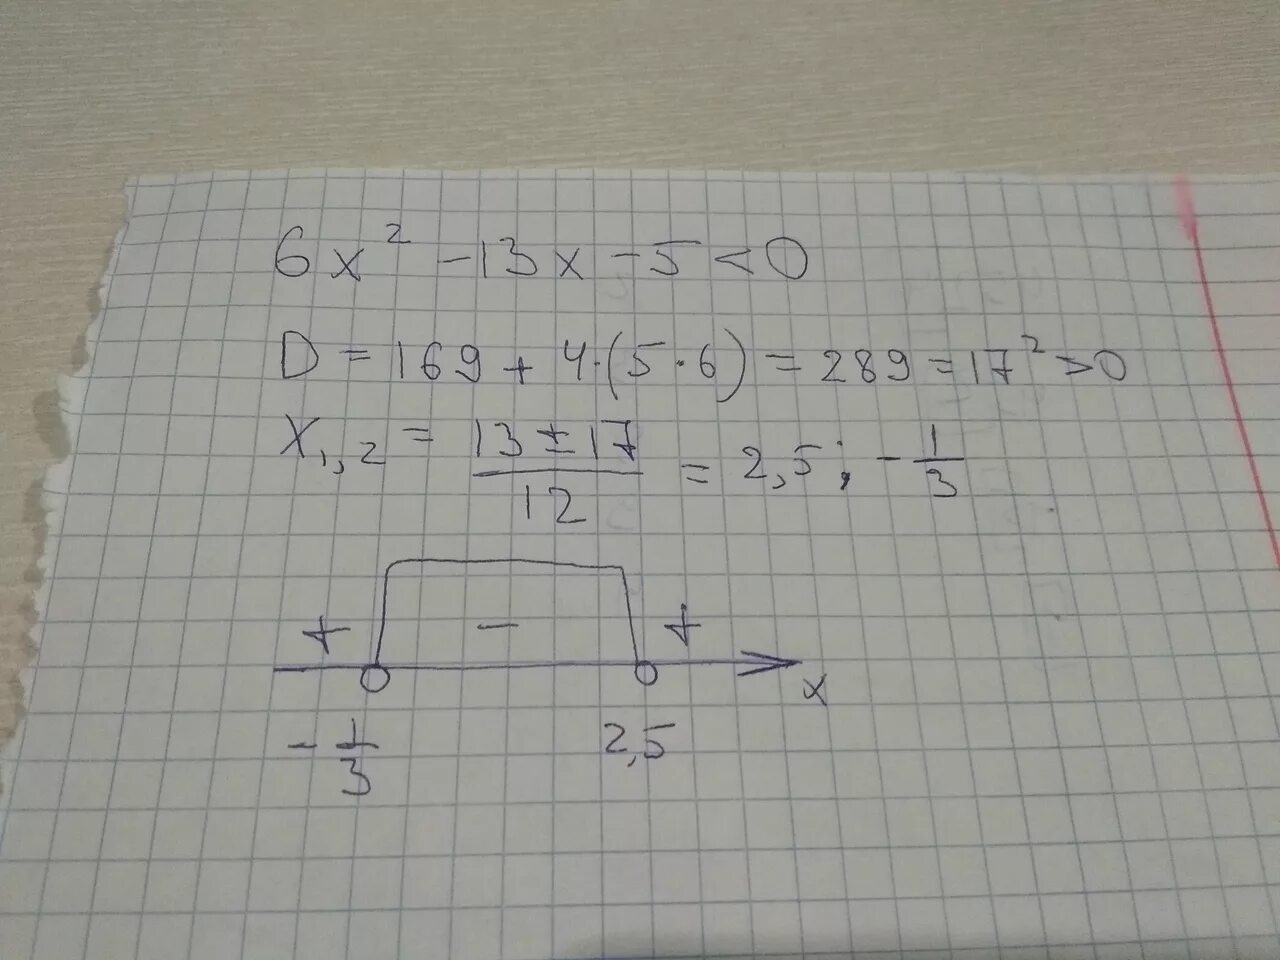 6x² -13x -5 < 0
D = 169 + 4·(5·6) = 289 = 17² > 0
X₁,₂ = (13 ± 17)/12 = 2,5 ; - 1/3
+ - +
x
- 1/3 2,5